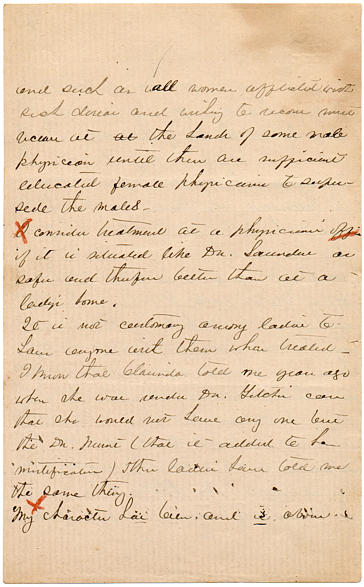 and such as all women afflicted with
such disease and wishing to recover must
receive at at the hands of some male
physician until there are sufficient
educated female physicians to super-
sede the males -
X I consider treatment at a physician's office
if it is situated like Dr. Saunders as
safe and therefore better than at a
lady's home.
It is not customary among ladies to
have anyone with them when treated -
I know that told me years ago
when she was under Dr. care
that she would not have any one but
the Dr. (that it added to her
mortification) other ladies have told me
the same thing.
X
My character has been and is, above